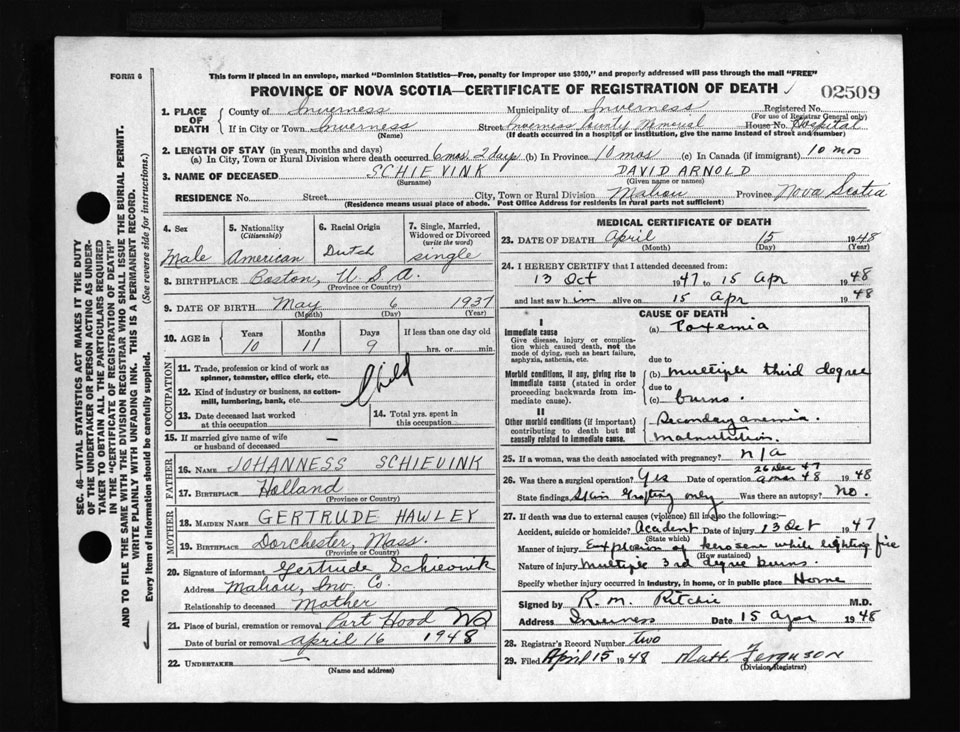 FORM 6
This form if placed in an envelope, marked "Dominion Statistics—Free, penalty for improper use $300," and properly addressed will pass through the mail "FREE"
PROVINCE OF NOVA SCOTIA—CERTIFICATE OF REGISTRATION OF DEATH
02509
1. PLACE OF DEATH
County of Inverness Municipality of Inverness Registered No.
(For use of Registrar General only)
If in City or Town Inverness Street Inverness County Memorial House No. Hospital
(Name) (If death occurred in a hospital or institution, give the name instead of street and number)
2. LENGTH OF STAY (in years, months and days)
(a) In City, Town or Rural Division where death occurred 6 mos 2 days (b) In Province 10 mos (c) In Canada (if immigrant) 10 mos
3. NAME OF DECEASED SCHIEVINK DAVID ARNOLD
(Surname) (Given name or names)
RESIDENCE No. Street City, Town or Rural Division Mabou Province Nova Scotia
(Residence means usual place of abode. Post Office Address for residents in rural parts not sufficient)
4. Sex
Male
5. Nationality
(Citizenship)
American
6. Racial Origin
Dutch
7. Single, Married, Widowed or Divorced
(write the word)
single
8. BIRTHPLACE Boston, U.S.A.
(Province or Country)
9. DATE OF BIRTH May 6 1937
(Month) (Day) (Year)
10. AGE in Years Months Days If less than one day old
10 11 9 hrs. or min.
OCCUPATION
11. Trade, profession or kind of work as spinner, teamster, office clerk, etc.
12. Kind of industry or business, as cotton-mill, lumbering, bank, etc.
Child
13. Date deceased last worked at this occupation
14. Total yrs. spent in this occupation
15. If married give name of wife or husband of deceased —
FATHER
16. NAME JOHANNESS SCHIEVINK
17. BIRTHPLACE Holland
(Province or Country)
MOTHER
18. MAIDEN NAME GERTRUDE HAWLEY
19. BIRTHPLACE Dorchester, Mass.
(Province or Country)
20. Signature of informant Gertrude Schievink
Address Mabou, Inv Co.
Relationship to deceased Mother
21. Place of burial, cremation or removal Port Hood NS
Date of burial or removal April 16 1948
22. UNDERTAKER —
(Name and address)
MEDICAL CERTIFICATE OF DEATH
23. DATE OF DEATH April 15 1948
(Month) (Day) (Year)
24. I HEREBY CERTIFY that I attended deceased from:
13 Oct 1947 to 15 Apr 1948
and last saw him alive on 15 Apr 1948
CAUSE OF DEATH
I
Immediate cause
Give disease, injury or complication which caused death, not the mode of dying, such as heart failure, asphyxia, asthenia, etc.
(a) Toxemia
due to
Morbid conditions, if any, giving rise to immediate cause (stated in order proceeding backwards from immediate cause).
(b) multiple third degree
due to
(c) burns.
II
Other morbid conditions (if important) contributing to death but not causally related to immediate cause.
Secondary anemia.
Malnutrition.
25. If a woman, was the death associated with pregnancy? n/a
26 Dec 47
26. Was there a surgical operation? Yes Date of operation 48 1948
State findings Skin Grafting only Was there an autopsy? No.
27. If death was due to external causes (violence) fill in also the following:
Accident, suicide or homicide? Accident Date of injury 13 Oct 1947
(State which)
Manner of injury Explosion of kerosene while lighting fire
(How sustained)
Nature of injury Multiple 3rd degree burns.
Specify whether injury occurred in industry, in home, or in public place Home
Signed by R. M. Ritchie M.D.
Address Inverness Date 15 Apr 1948
28. Registrar's Record Number two
29. Filed April 15 1948 Matt Ferguson
(Division Registrar)
SEC. 46—VITAL STATISTICS ACT MAKES IT THE DUTY
OF THE UNDERTAKER OR PERSON ACTING AS UNDER-
TAKER TO OBTAIN ALL THE PARTICULARS REQUIRED
IN THE "CERTIFICATE OF REGISTRATION OF DEATH"
AND TO FILE THE SAME WITH THE DIVISION REGISTRAR WHO SHALL ISSUE THE BURIAL PERMIT.
WRITE PLAINLY WITH UNFADING INK. THIS IS A PERMANENT RECORD.
Every item of information should be carefully supplied. (See reverse side for instructions.)